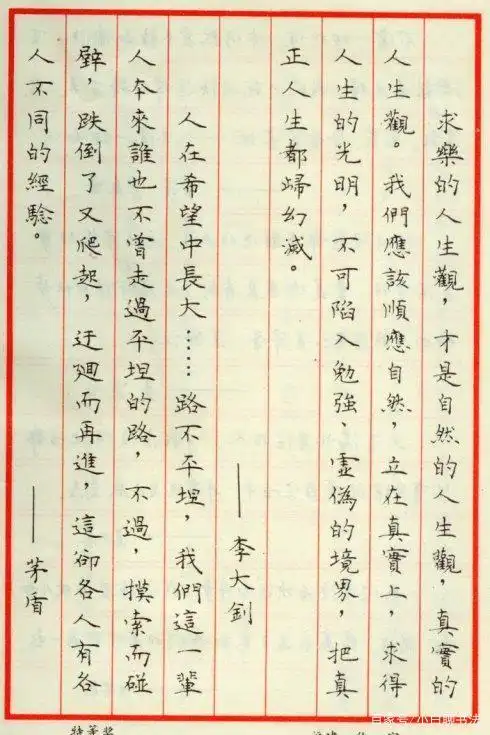 求樂的人生觀，才是自然的人生觀，真實的
人生觀。我們應該順應自然，立在真實上，求得
人生的光明，不可陷勉強、虛偽的境界，把真
正人生都歸幻滅。
——李大釗
人在希望中長大……路不平坦，我們這一輩
人本來誰也不曾走過平坦的路，不過，摸索而碰
壁，跌倒了又爬起，迂迴而再進，這卻各人有各
人不同的經驗。
——茅盾
特等獎
百家号/小白聊书法